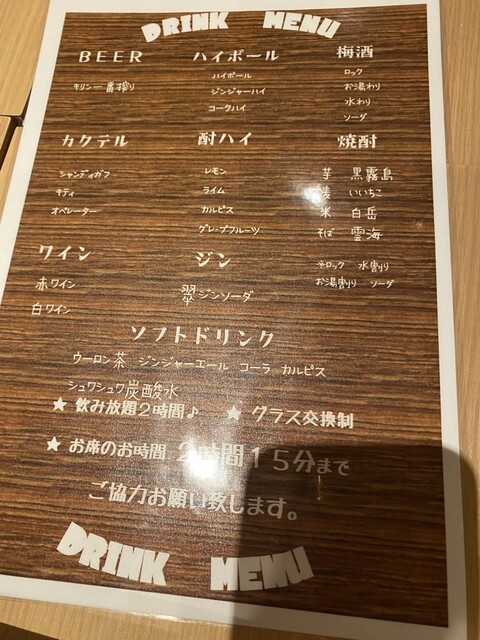 DRINK MENU
BEER
キリン一番搾り
ハイボール
ハイボール
ジンジャーハイ
コークハイ
梅酒
ロック
お湯わり
水わり
ソーダ
カクテル
シャンディガフ
キティ
オペレーター
酎ハイ
レモン
ライム
カルピス
グレープフルーツ
焼酎
芋 黒霧島
麦 いいちこ
米 白岳
そば 雲海
*ロック 水割り
お湯割り ソーダ
ワイン
赤ワイン
白ワイン
ジン
翠ジンソーダ
ソフトドリンク
ウーロン茶 ジンジャーエール コーラ カルピス
シュワシュワ炭酸水
★ 飲み放題2時間♪ ★ グラス交換制
★ お席のお時間 2時間15分まで
ご協力お願い致します。
DRINK MENU